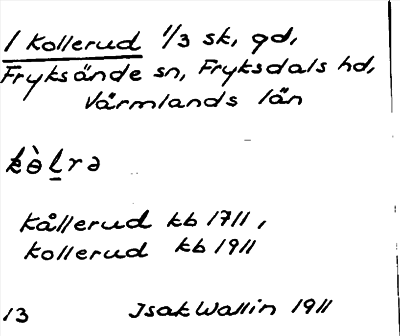 / Kollerud 1/3 sk, gd,
Fryksände sn, Fryksdals hd,
Värmlands län
kɵ̀l̲rə
Kållerud kb 1711,
Kollerud kb 1911
13 Isak Wallin 1911